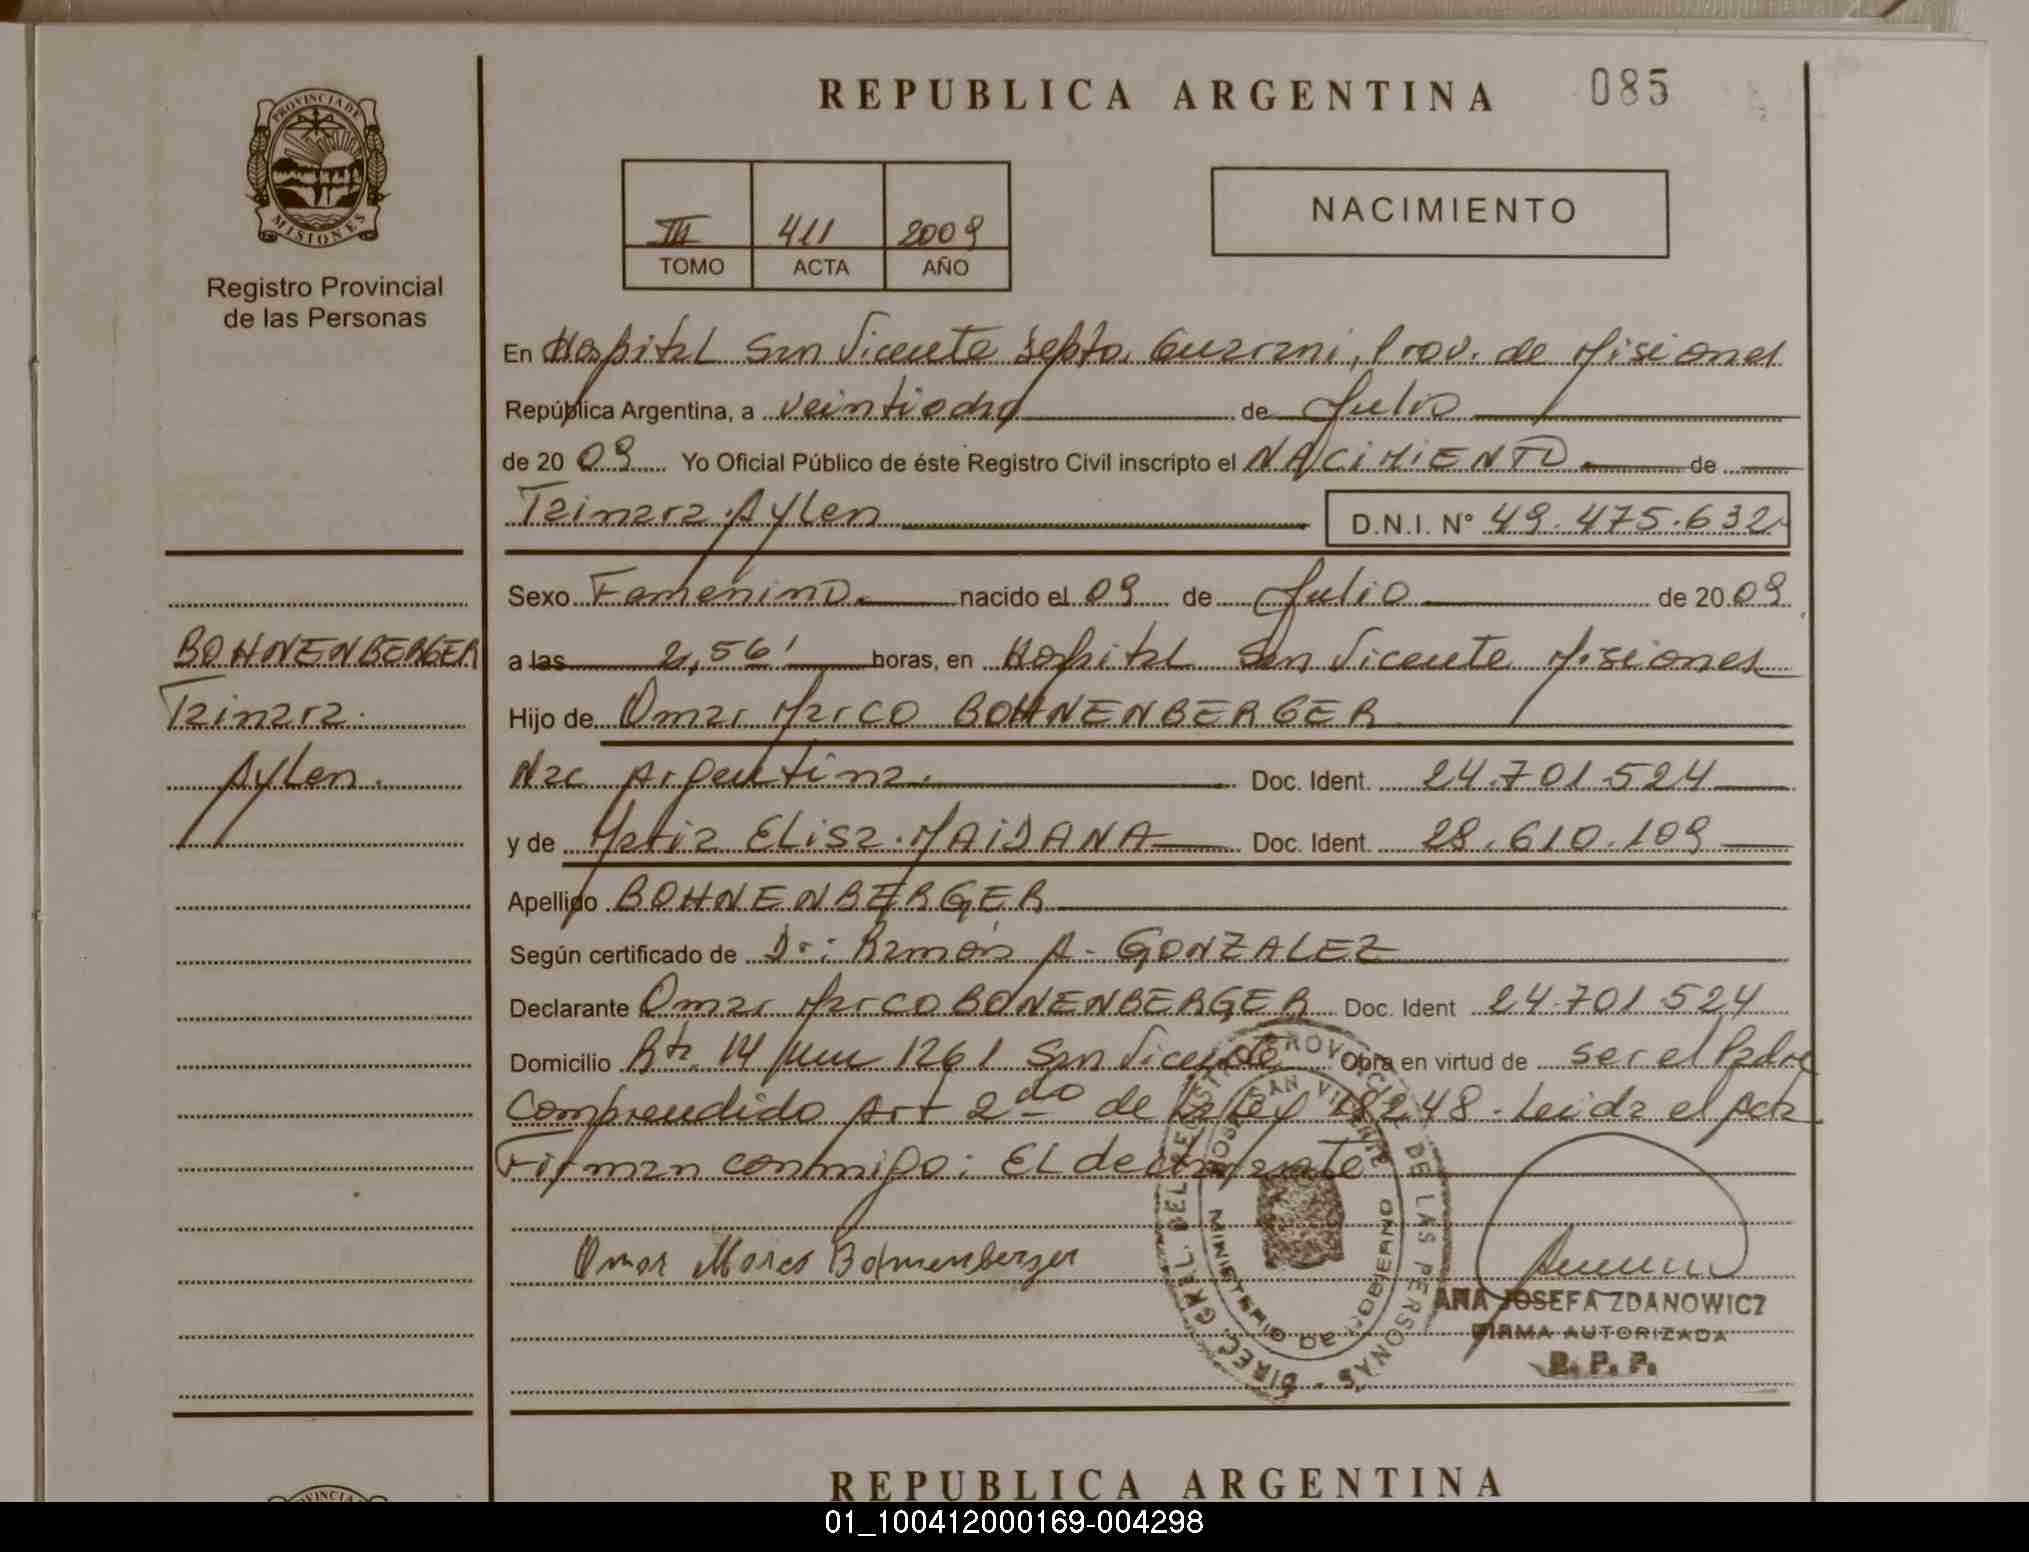 REPUBLICA ARGENTINA 085
PROVINCIA DE
MISIONES
Registro Provincial
de las Personas
III 411 2009
TOMO ACTA AÑO
NACIMIENTO
En Hospital San Vicente Depto. Guarani, Prov. de Misiones
República Argentina, a veintiocho de Julio
de 20 09 Yo Oficial Público de éste Registro Civil inscripto el NACIMIENTO de
Tainara Aylen D.N.I. N° 49.475.632
Sexo Femenino. nacido el 09 de Julio de 20 09
BOHNENBERGER
a las 2,56' horas, en Hospital San Vicente Misiones
Tainara.
Hijo de Omar Marco BOHNENBERGER
Aylen.
Nac Argentina. Doc. Ident. 24.701.524
y de Maria Elisa. MAIDANA Doc. Ident. 28.610.109
Apellido BOHNENBERGER
Según certificado de Dr: Ramón A. GONZALEZ
Declarante Omar Marco BONENBERGER Doc. Ident 24.701.524
Domicilio Rta. 14 km 1261 San Vicente Obra en virtud de ser el Padre
Comprendido Art 2do de la Ley 18248. Leida el Acta
Firman conmigo: El declarante
Omar Marco Bohnenberger
DIREC. GRAL. DEL REGISTRO PROVINCIAL DE LAS PERSONAS -
HOSP. SAN VICENTE
MINISTERIO DE GOBIERNO
ANA JOSEFA ZDANOWICZ
FIRMA AUTORIZADA
R. P. P.
REPUBLICA ARGENTINA
PROVINCIA
01_100412000169-004298